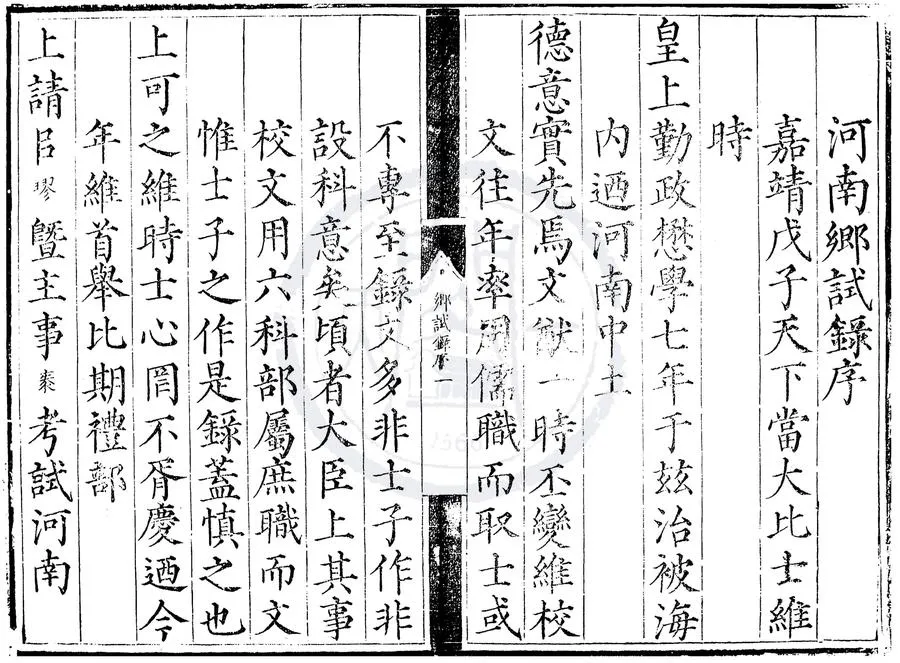 河南鄉試錄序
嘉靖戊子天下當大比士維
時
皇上勤政懋學七年于玆治被海
内迺河南中土
德意實先焉文猷一時丕變維校
文往年率用儒職而取士或
鄉試錄序一
不專至錄文多非士子作非
設科意矣頃者大臣上其事
校文用六科部屬庶職而文
惟士子之作是錄蓋慎之也
上可之維時士心罔不胥慶迺今
年維首舉比期禮部
上請臣璆暨主事泰考試河南